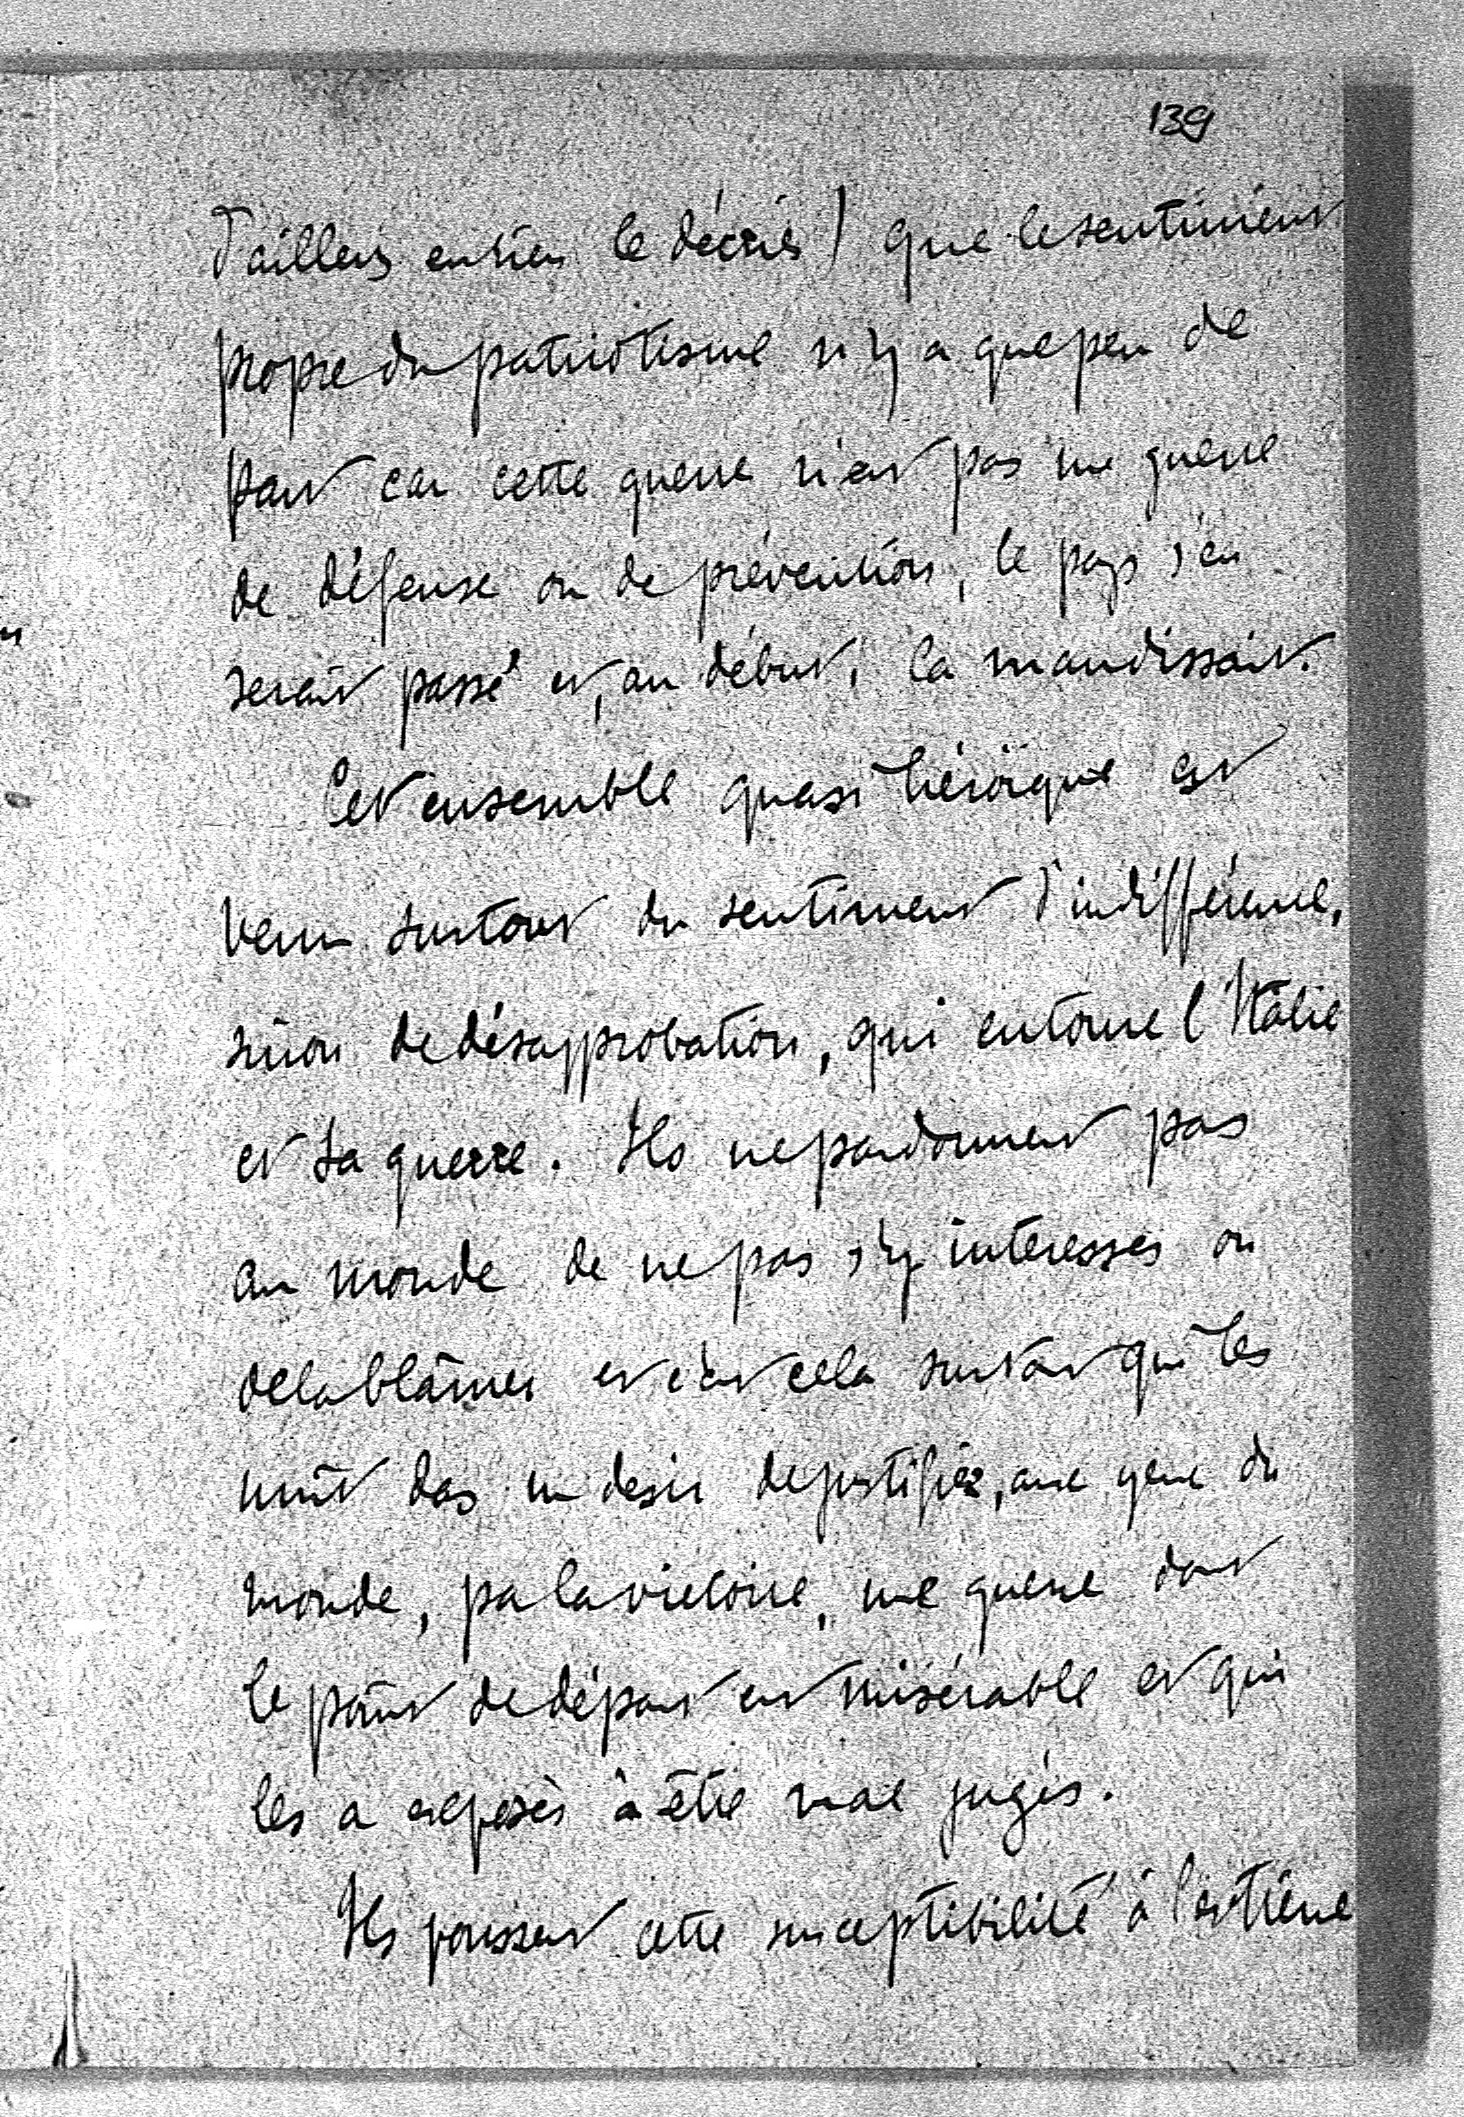 139
d'ailleurs entier le décrié) que le sentiment
propre du patriotisme n'y a que peu de
part car cette guerre n'est pas une guerre
de défense ou de prévention, le pays s'en
serait passé et, au début, la maudissait.
Cet ensemble quasi héroïque est
venu surtout du sentiment d'indifférence,
sinon de désapprobation, qui entoure l'Italie
et sa guerre. Ils ne pardonnent pas
au monde de ne pas s'y intéresser ou
de la blâmer et c'est cela surtout qui les
unit dans un désir de justifier, aux yeux du
monde, par la victoire, une guerre dont
le point de départ est misérable et qui
les a exposés à être mal jugés.
Ils poussent cette susceptibilité à l'extrême